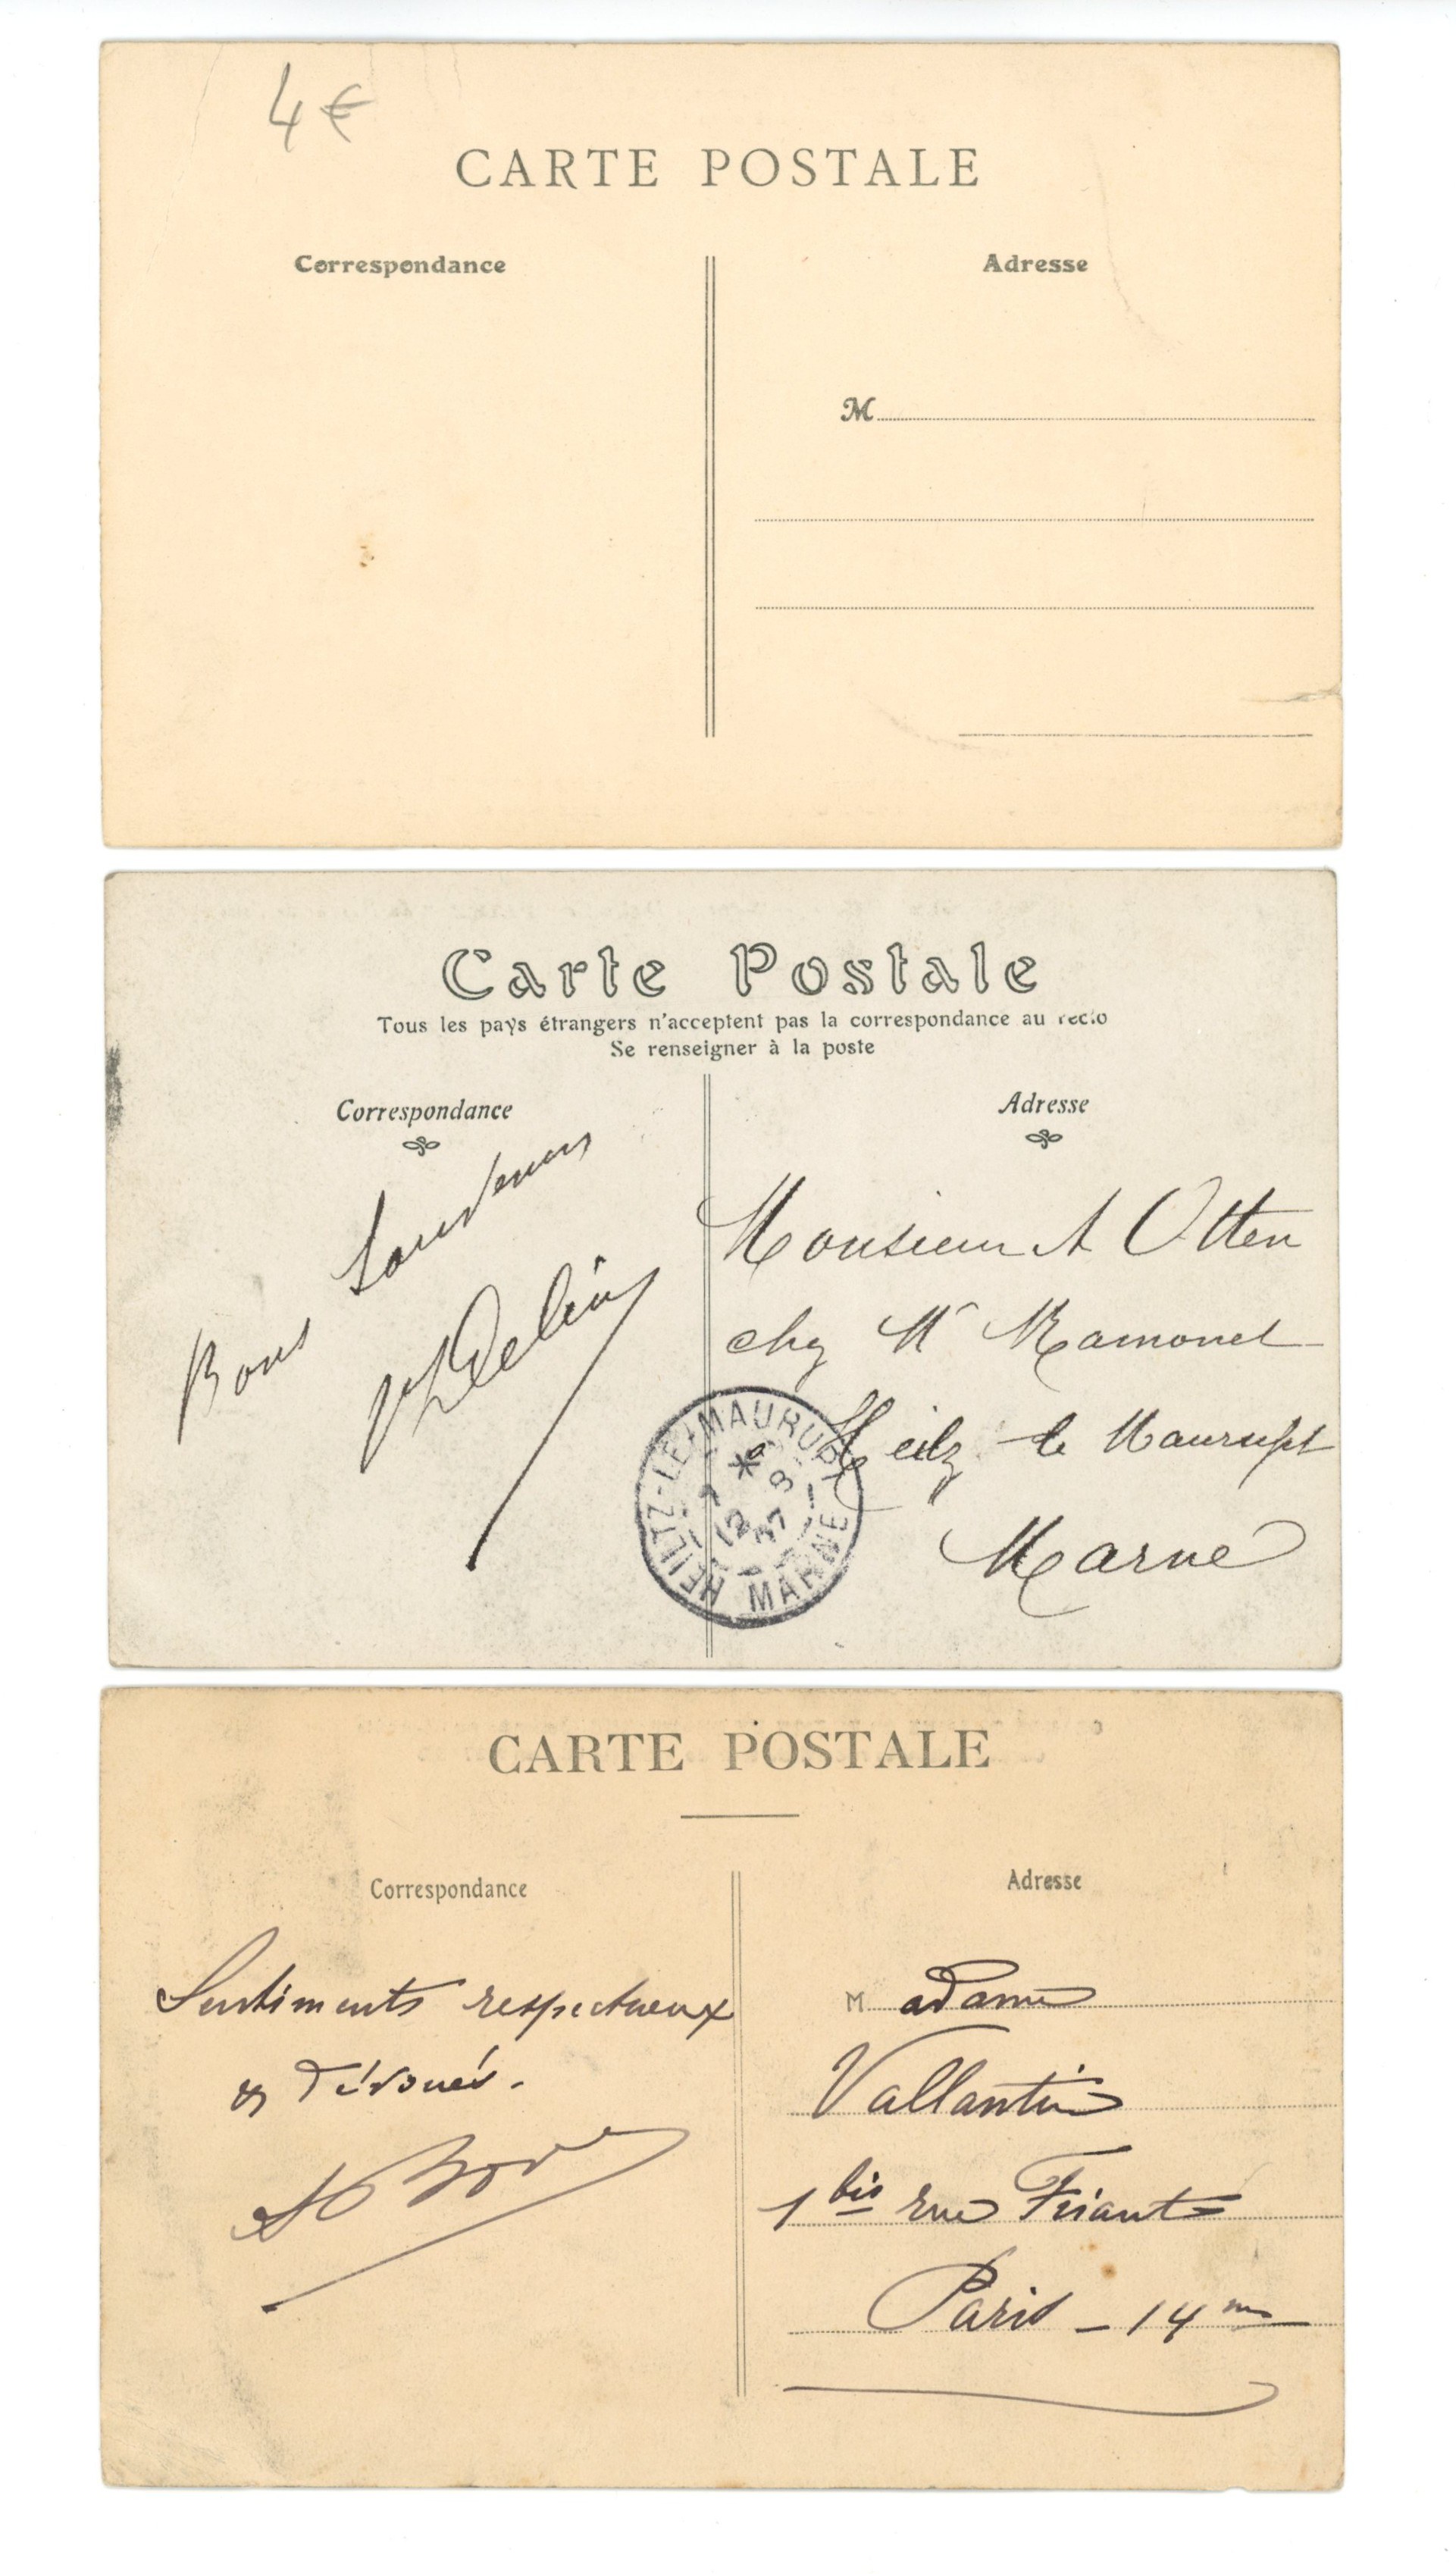 4 €
CARTE POSTALE
Correspondance
Adresse
M
Carte Postale
Tous les pays étrangers n'acceptent pas la correspondance au recto
Se renseigner à la poste
Correspondance
Adresse
Bons Souvenirs
Monsieur A Otten
chez Mr Ramonet
Heilz le Maurupt
Marne
HEILTZ-LE-MAURUPT
12
07
MARNE
CARTE POSTALE
Correspondance
Adresse
Sentiments respectueux
& dévoués.
Madame
Vallantin
1 bis rue Friant
Paris - 14me